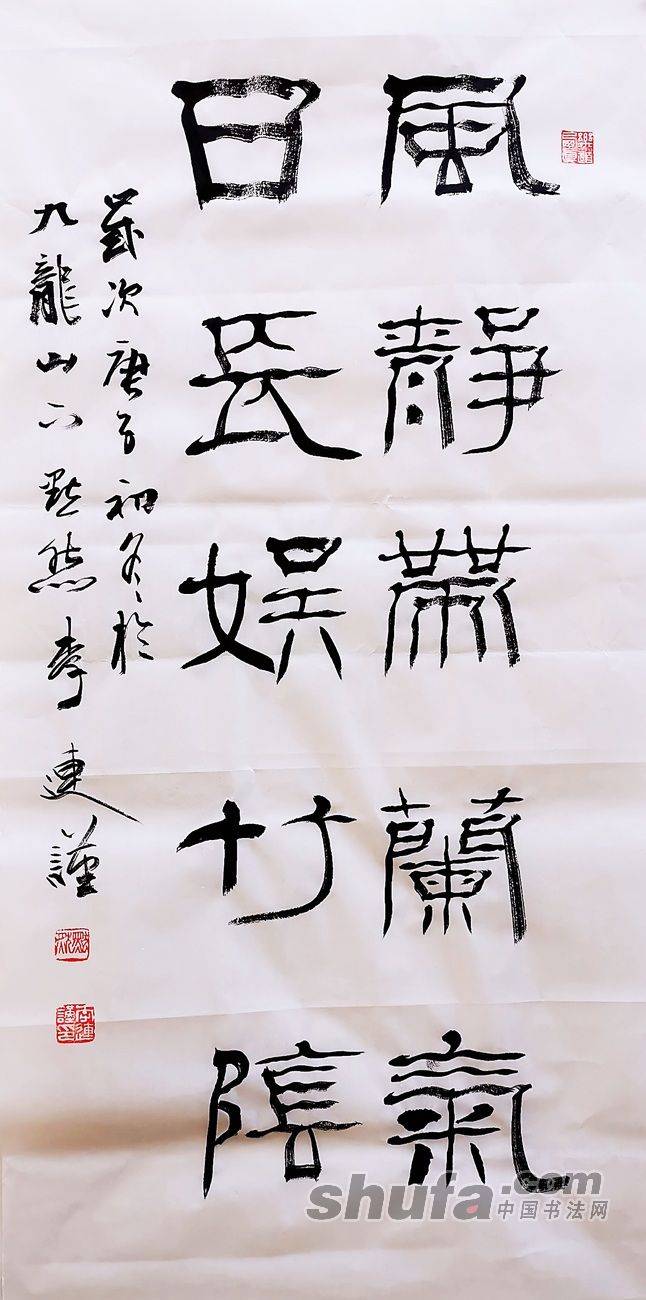 風靜帶蘭氣
日長娛竹陰
歲次庚子初冬於
九龍山下默然李連謹
shufa.com
中国书法网